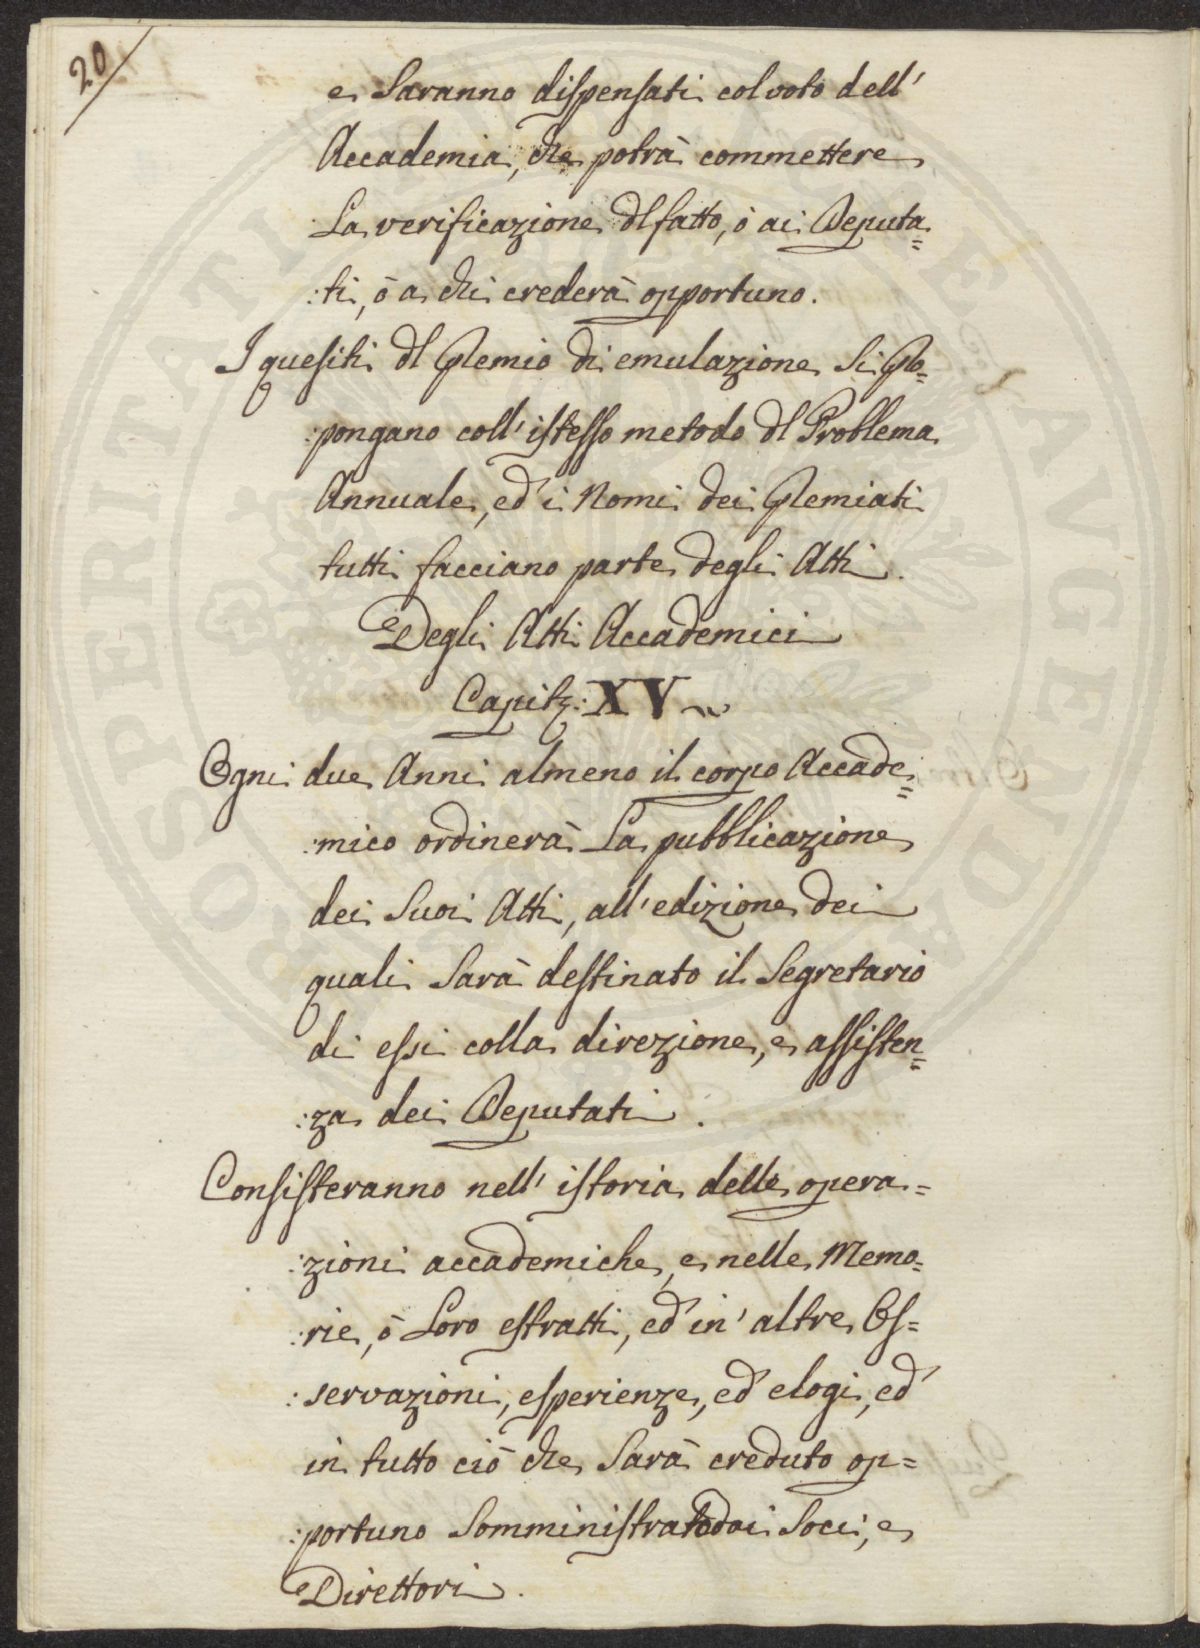 20
e saranno dispensati col voto dell'
Accademia, che potrà commettere
La verificazione dl fatto, ò ai Deputa=
:ti, ò a chi crederà opportuno.
I quesiti dl Premio di emulazione si Pro=
:pongano coll' istesso metodo dl Problema
Annuale, ed' i Nomi dei Premiati
tutti facciano parte degli Atti.
Degli Atti Accademici
Capit.: XV
Ogni due Anni almeno il corpo Accade=
:mico ordinerà La pubblicazione
dei Suoi Atti, all' edizione dei
quali Sarà destinato il Segretario
di essi colla direzione, e assisten=
:za dei Deputati.
Consisteranno nell' istoria delle opera=
:zioni accademiche, e nelle Memo=
:rie, ò Loro estratti, ed' in' altre Os=
:servazioni, esperienze, ed' elogi, ed'
in tutto ciò che Sarà creduto op=
:portuno Somministrato dai Soci, e
Direttori.
PROSPERITATI PUBLICAE AUGENDAE